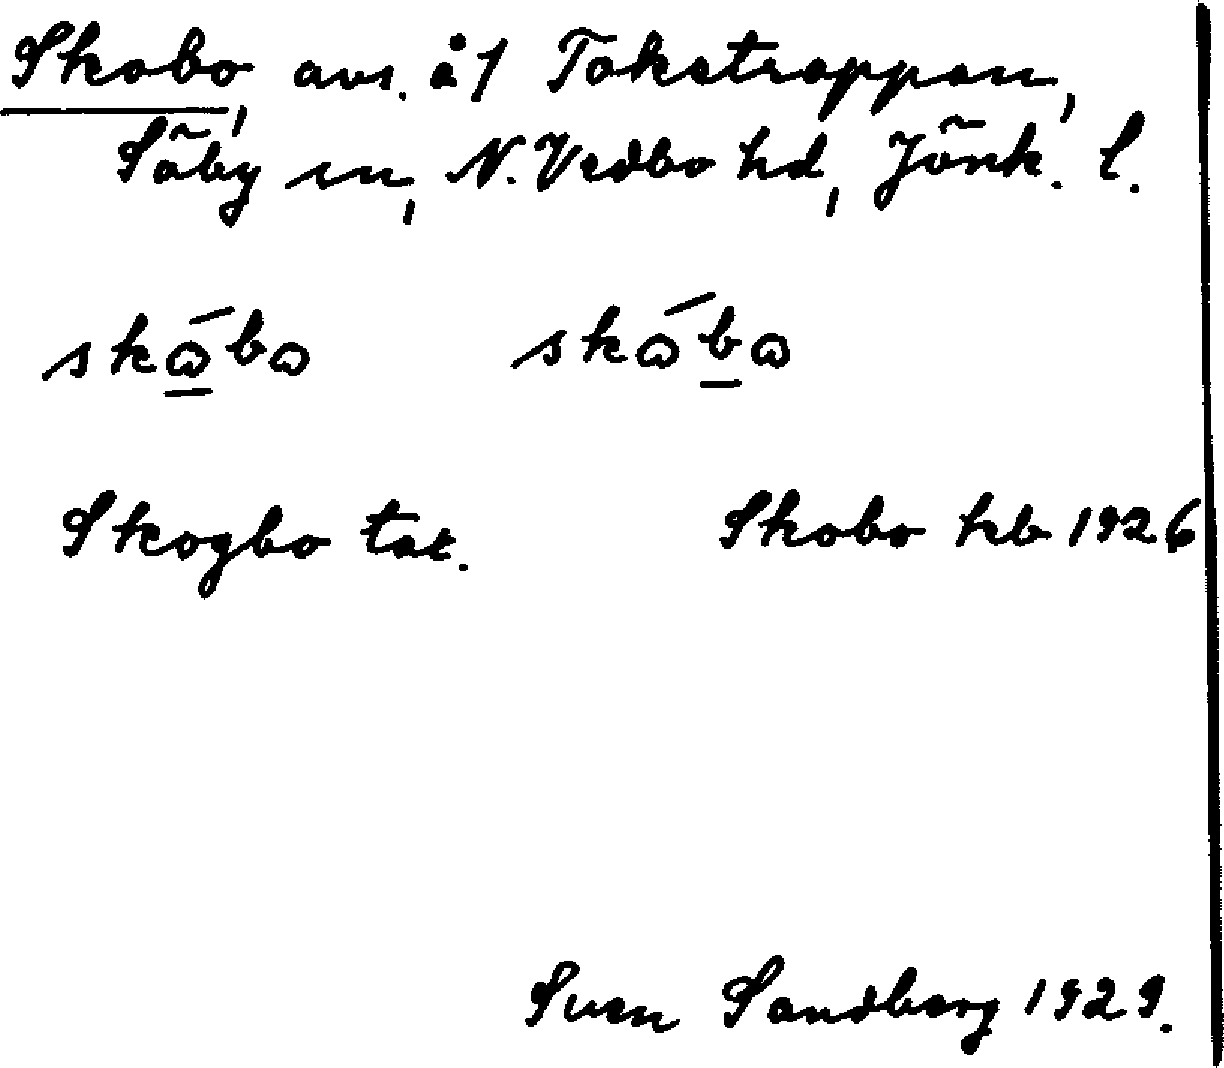 Skobo, avs. å 1 Toketrappan,
Säby sn, N. Vedbo hd, Jönk. l.
skɷ́bɷ skɷ́bɷ
Skogbo Skobo kb 1926
Sven Sandberg 1929.